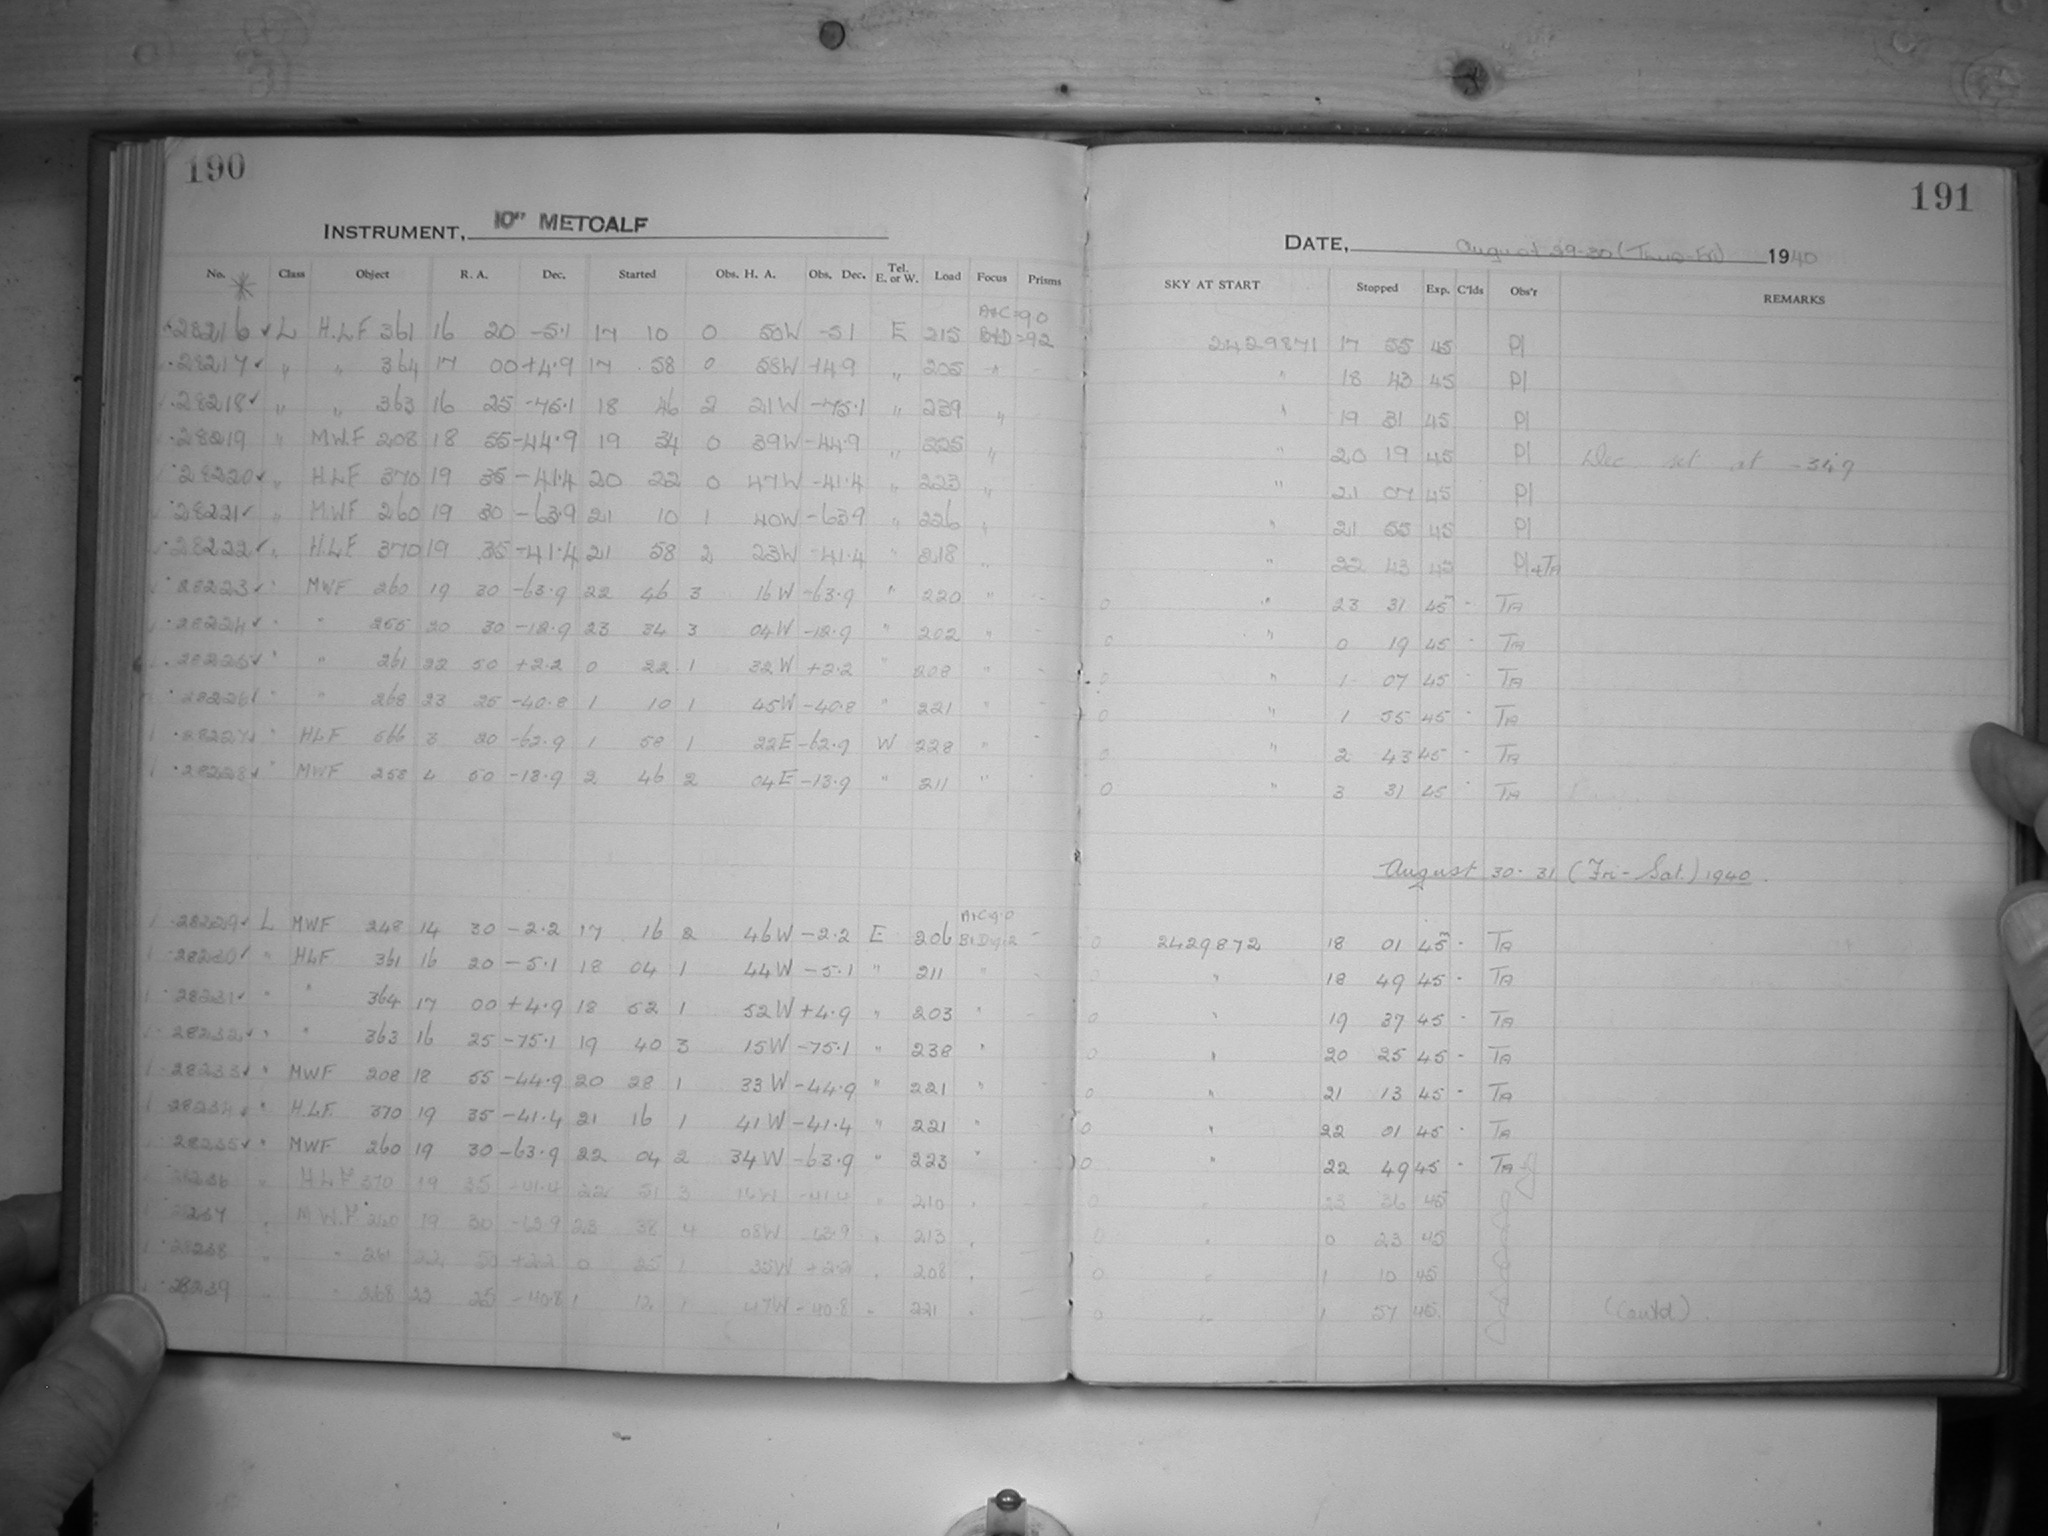 190
INSTRUMENT, 10" METCALF
No. Class Object R. A. Dec. Started Obs. H. A. Obs. Dec. Tel. E. or W. Load Focus Prisms
A+C=90
28216 L H.L.F 361 16 20 -5.1 17 10 0 50W -51 E 215 B+D=92
28217 " " 364 17 00 +4.9 17 58 0 58W +49 " 205 "
28218 " " 363 16 25 -75.1 18 46 2 21W -75.1 " 239 "
28219 " M.W.F 208 18 55 -44.9 19 34 0 39W -44.9 " 225 "
28220 " H.L.F 370 19 35 -41.4 20 22 0 47W -41.4 " 223 "
28221 " M.W.F 260 19 30 -63.9 21 10 1 40W -639 " 226 "
28222 " H.L.F 370 19 35 -41.4 21 58 2 23W -41.4 " 218 "
28223 " MWF 260 19 30 -63.9 22 46 3 16W -63.9 " 220 "
28224 " " 255 20 30 -18.9 23 34 3 04W -18.9 " 202 "
28225 " " 261 22 50 +2.2 0 22 1 32W +2.2 " 208 "
28226 " " 268 23 25 -40.8 1 10 1 45W -40.8 " 221 "
28227 " HLF 566 3 20 -62.9 1 58 1 22E -62.9 W 228 "
28228 " MWF 258 4 50 -18.9 2 46 2 04E -18.9 " 211 "
A+C 9.0
28229 L MWF 248 14 30 -2.2 17 16 2 46W -2.2 E 206 B+D 9.2
28230 " HLF 361 16 20 -5.1 18 04 1 44W -5.1 " 211 "
28231 " " 364 17 00 +4.9 18 52 1 52W +4.9 " 203 "
28232 " " 363 16 25 -75.1 19 40 3 15W -75.1 " 238 "
28233 " MWF 208 18 55 -44.9 20 28 1 33W -44.9 " 221 "
28234 " H.L.F. 370 19 35 -41.4 21 16 1 41W -41.4 " 221 "
28235 " MWF 260 19 30 -63.9 22 04 2 34W -63.9 " 223 "
28236 " H.L.F 370 19 35 -41.4 22 51 3 16W -41.4 " 210 "
28237 " M.W.F 260 19 30 -63.9 23 38 4 08W 63.9 " 213 "
28238 " " 261 22 50 +2.2 0 25 1 35W +2.2 " 208 "
28239 " " 268 23 25 -40.8 1 12 1 47W -40.8 " 221 "
191
DATE, August 29-30 (Thurs-Fri) 1940
SKY AT START Stopped Exp. C'lds Obs'r REMARKS
2429871 17 55 45 Pl
" 18 43 45 Pl
" 19 31 45 Pl
" 20 19 45 Pl Dec. set at -34.9
" 21 07 45 Pl
" 21 55 45 Pl
" 22 43 45 Pl+TA
0 " 23 31 45 - TA
0 " 0 19 45 - TA
0 " 1 07 45 - TA
0 " 1 55 45 - TA
0 " 2 43 45 - TA
0 " 3 31 45 - TA
August 30-31 (Fri-Sat.) 1940.
0 2429872 18 01 45 - TA
" 18 49 45 - TA
0 " 19 37 45 - TA
0 " 20 25 45 - TA
0 " 21 13 45 - TA
0 " 22 01 45 - TA
0 " 22 49 45 - TA
0 " 23 36 45
0 " 0 23 45
0 " 1 10 45
0 " 1 57 45 (contd).